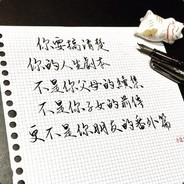 你要搞清楚
你的人生剧本
不是你父母的续集
不是你子女的前传
更不是你朋友的番外篇